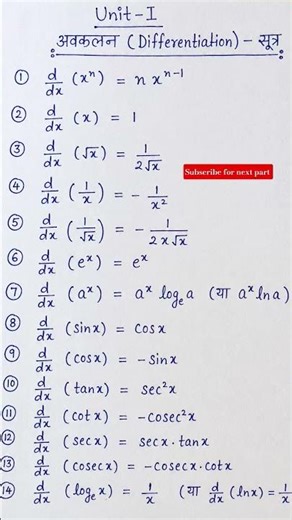 Unit-I
अवकलन (Differentiation) - सूत्र
① d/dx (xⁿ) = n xⁿ⁻¹
② d/dx (x) = 1
③ d/dx (√x) = 1/2√x
Subscribe for next part
④ d/dx (1/x) = - 1/x²
⑤ d/dx (1/√x) = - 1/2x√x
⑥ d/dx (eˣ) = eˣ
⑦ d/dx (aˣ) = aˣ logₑa (या aˣ ln a)
⑧ d/dx (sinx) = cosx
⑨ d/dx (cosx) = -sinx
⑩ d/dx (tanx) = sec²x
⑪ d/dx (cotx) = -cosec²x
⑫ d/dx (secx) = secx.tanx
⑬ d/dx (cosecx) = -cosecx.cotx
⑭ d/dx (logₑx) = 1/x (या d/dx (lnx) = 1/x